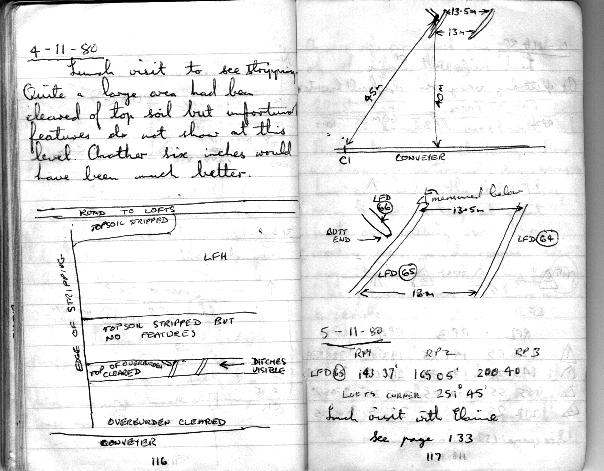 4-11-80
Lunch visit to see stripping.
Quite a large area had been
cleared of top soil but unfortunat
features do not show at this
level. Another six inches would
have been much better.
ROAD TO LOFTS
TOPSOIL STRIPPED
LFH
EDGE OF STRIPPING
TOPSOIL STRIPPED BUT
NO FEATURES
TOP OF OVERBURDEN
CLEARED
DITCHES
VISIBLE
OVERBURDEN CLEARED
CONVEYER
116
13.5m
13m
45m
40m
C1
CONVEYER
LFD
66
measured below
13.5m
BUTT
END
LFD 64
LFD 65
13m
5-11-80
RP1 RP2 RP3
LFD 65 143 37' 165 05' 200 40'
LOFTS CORNER 251° 45'
Lunch visit with Elaine
See page 133
117